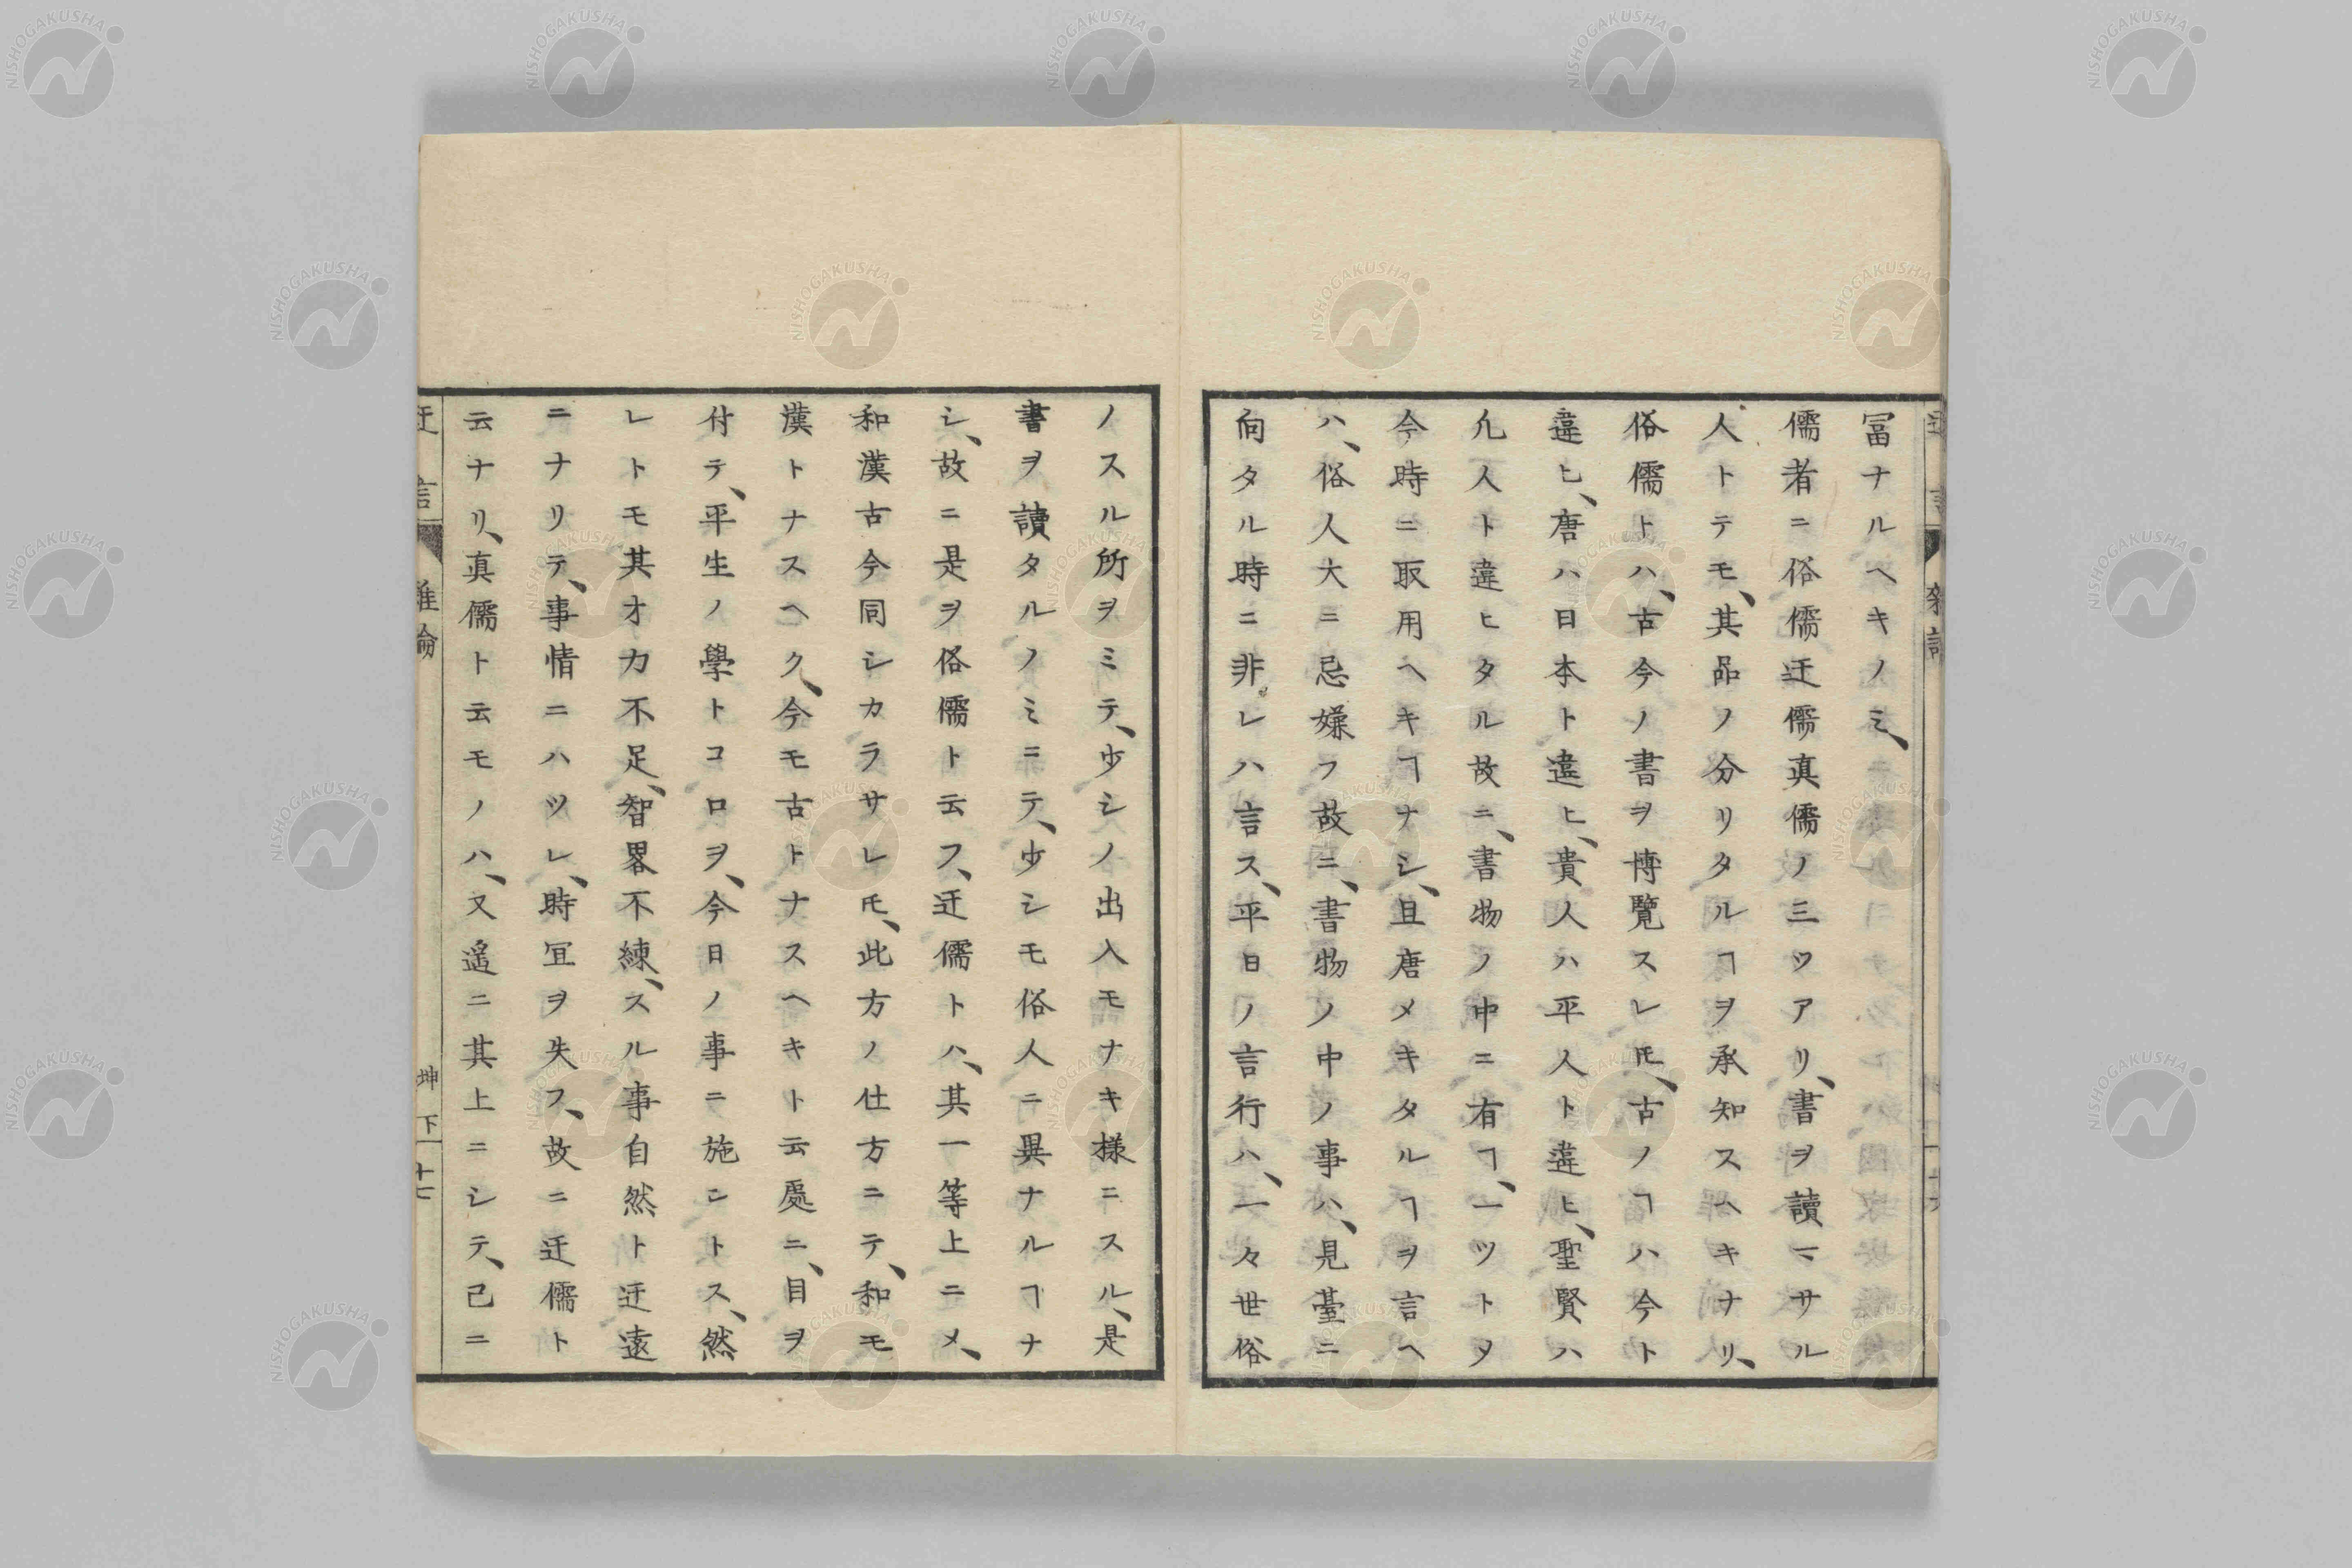 冨ナルヘキノミ、
儒者ニ俗儒迂儒真儒ノ三ツアリ、書ヲ讀マサル
人トテモ、其品ノ分リタルヿヲ承知スヘキナリ、
俗儒トハ、古今ノ書ヲ博覧スレ𪜈、古ノヿハ今ト
違ヒ、唐ハ日本ト違ヒ、貴人ハ平人ト違ヒ、聖賢ハ
凢人ト違ヒタル故ニ、書物ノ中ニ有ヿ、一ツトヲ
今時ニ取用ヘキヿナシ、且唐メキタルヿヲ言ヘ
ハ、俗人大ニ忌嫌フ故ニ、書物ノ中ノ事ハ、見臺ニ
向タル時ニ非レハ言ス、平日ノ言行ハ、一々世俗
ノスル所ヲミテ、少シノ出入モナキ様ニスル、是
書ヲ讀タルノミニテ、少シモ俗人ニ異ナルヿナ
シ、故ニ是ヲ俗儒ト云フ、迂儒トハ、其一等上ニメ、
和漢古今同シカラサレ𪜈、此方ノ仕方ニテ、和モ
漢トナスヘク、今モ古トナスヘキト云處ニ、目ヲ
付テ、平生ノ學トコロヲ、今日ノ事ニ施ントス、然
レトモ其才力不足、智畧不練、スル事自然ト迂遠
ニナリテ、事情ニハツレ、時冝ヲ失フ、故ニ迂儒ト
云ナリ、真儒ト云モノハ、又遥ニ其上ニシテ、己ニ
迂言
雑論
坤下
十七